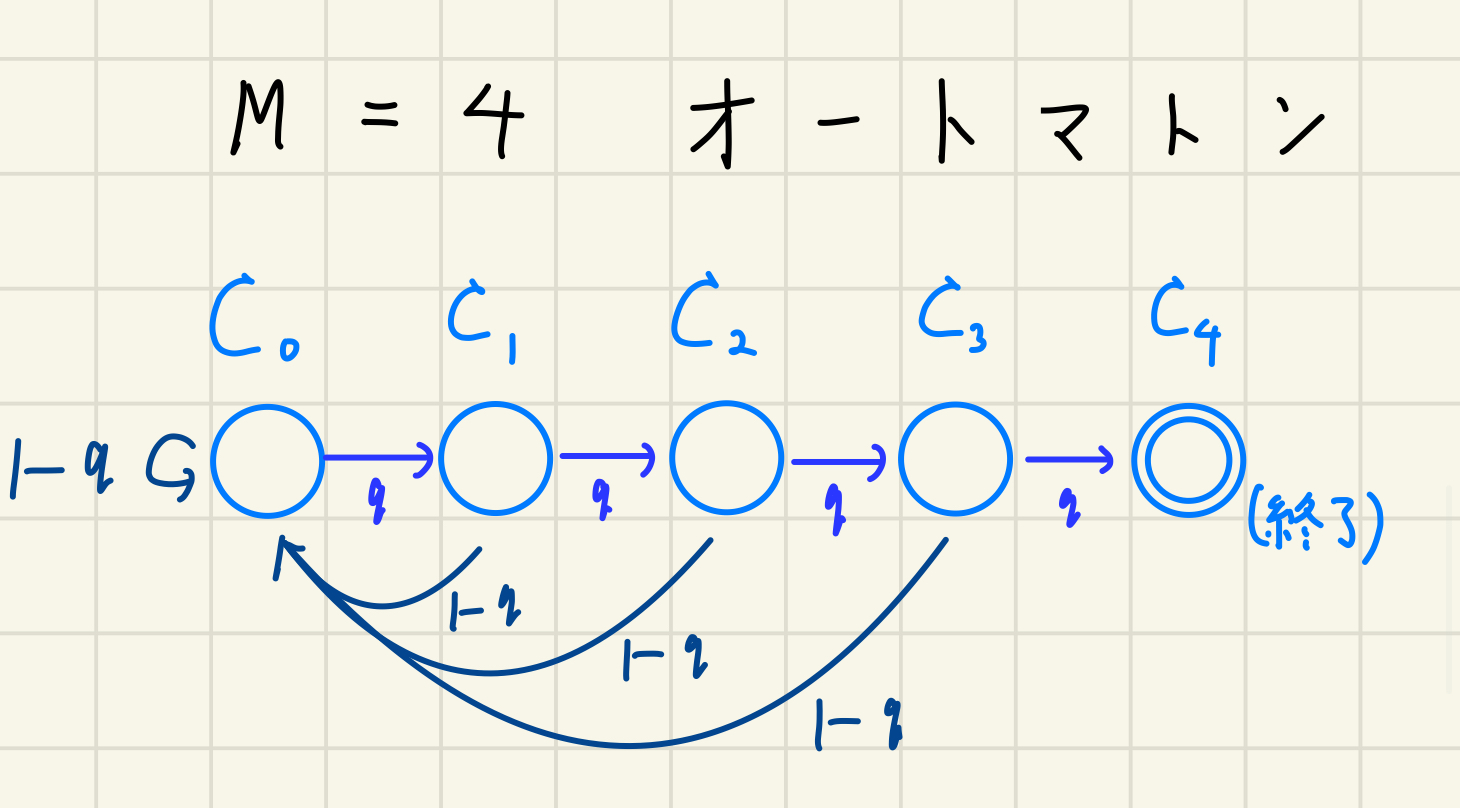 M = 4 オートマトン
C₀ C₁ C₂ C₃ C₄
1-q
q q q q
(終了)
1-q
1-q
1-q